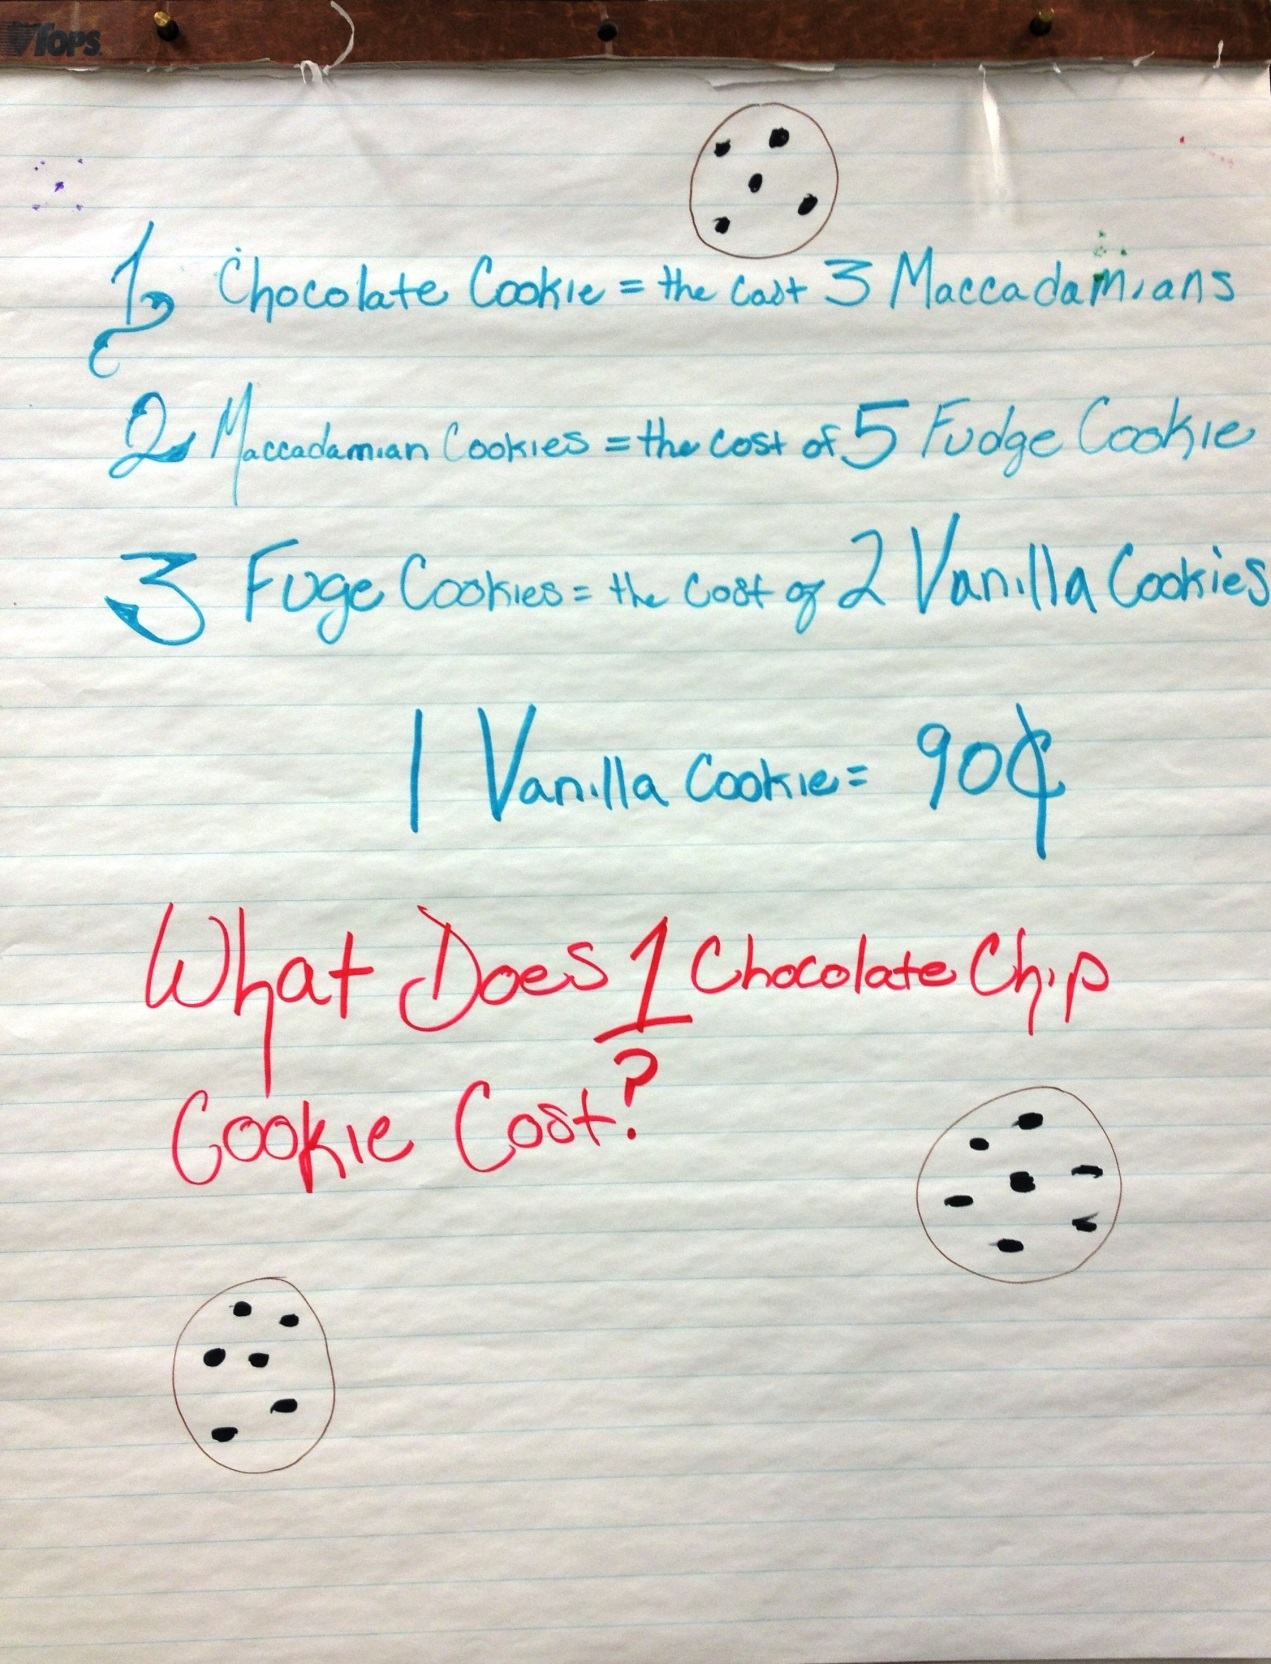 TOPS
1 Chocolate Cookie = the cost 3 Maccadamians
2 Maccadamian Cookies = the cost of 5 Fudge Cookie
3 Fuge Cookies = the cost of 2 Vanilla Cookies
1 Vanilla Cookie = 90¢
What Does 1 Chocolate Chip
Cookie Cost?